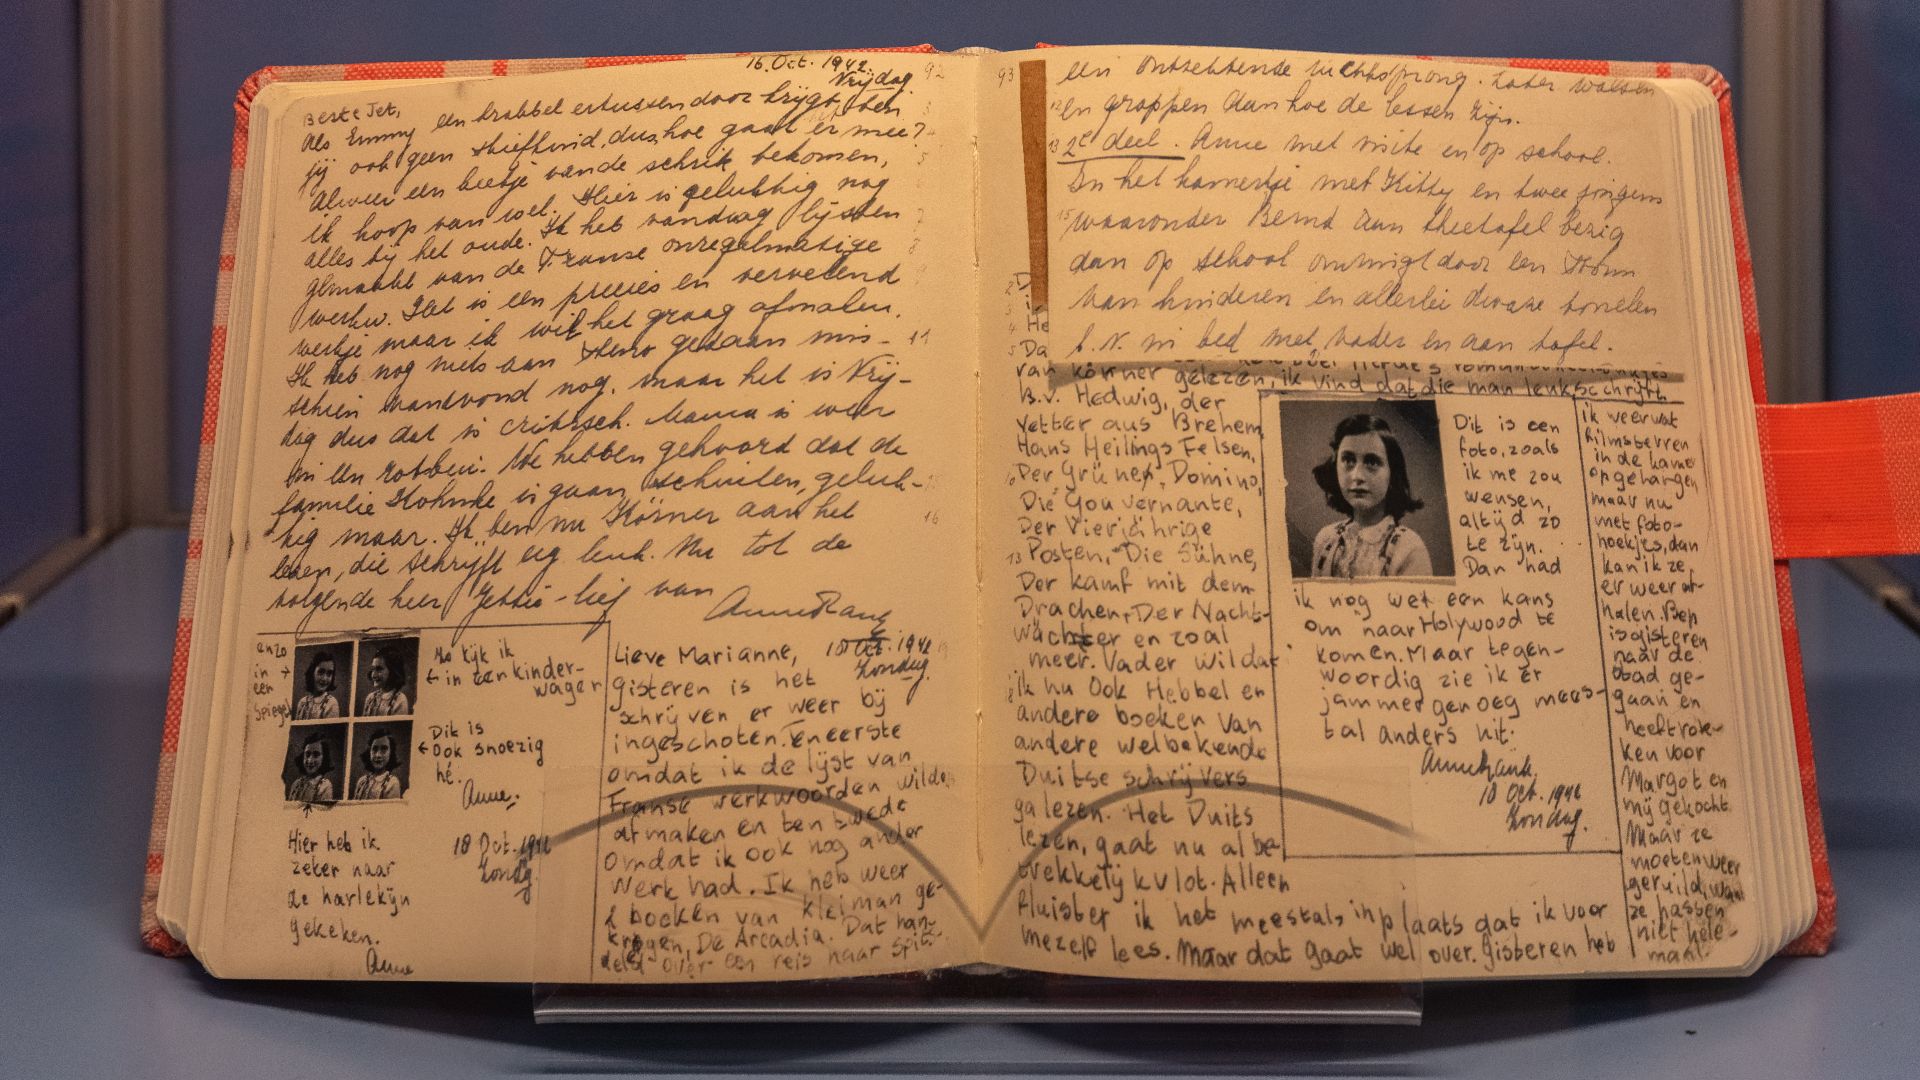 16. Oct. 1942.
Vrijdag.
92
Beste Jet,
Als Emmy een krabbel ertussendoor krijgt, ben
jij ook geen stiefkind, dus hoe gaat er mee?
Alweer een beetje van de schrik bekomen,
ik hoop van wel. Hier is gelukkig nog
alles bij het oude. Ik heb vandaag lijsten
gemaakt van de Franse onregelmatige
werkw. Het is een precies en vervelend
werkje maar ik wil het graag afmaken.
Ik heb nog niets aan steno gedaan mis-
schien vanavond nog, maar het is Vrij-
dag dus dat is critisch. Mama is weer
We hebben gehoord dat de
familie is gaan schuilen, geluk-
kig maar. Ik ben nu Körner aan het
lezen, die schrijft erg leuk. Nu tot de
volgende keer Jettie-lief van
Anne Frank
enzo
in →
een
spiegel
Zo kijk ik
← in een kinder-
wagen
Dit is
← ook snoezig
hé.
Anne.
Hier heb ik
zeker naar
de harlekijn
gekeken.
Anne
18 Oct. 1942
Zondag.
Lieve Marianne,
18 Oct. 1942
Zondag.
gisteren is het
schrijven er weer bij
ingeschoten. Ten eerste
omdat ik de lijst van
Franse werkwoorden wilde
afmaken en ten twede
omdat ik ook nog ander
werk had. Ik heb weer
2 boeken van Kleiman ge-
kregen, De Arcadia. Dat han-
deld over een reis naar Spits-
93
een ontzettende luchtsprong. Later walsen
en grappen dan hoe de lessen zijn.
2e deel. Anne met visite en op school.
In het kamertje met Kitty en twee jongens
waaronder Bernd aan theetafel bezig
dan op school omringd door een
van kinderen en allerlei dwaze tonelen
b.v. in bed met vader en aan tafel.
D
He
Da
van Körner gelezen, ik vind dat die man leuk schrijft.
B.v. Hedwig, der
Vetter aus Brehem,
Hans Heilings Felsen,
Der Grüne, Domino,
Die Gouvernante,
Der Vierjährige
Posten, Die Sühne,
Der kamf mit dem
Drachen, Der Nacht-
wächter en zoal
meer. Vader wil dat
ik nu ook Hebbel en
andere boeken van
andere welbekende
Duitse schrijvers
ga lezen. Het Duits
lezen, gaat nu al be-
trekkelijk vlot. Alleen
fluister ik het meestal, in plaats dat ik voor
mezelf lees. Maar dat gaat wel over. Gisteren heb
Dit is een
foto, zoals
ik me zou
wensen,
altijd zo
te zijn.
Dan had
ik nog wel een kans
om naar Holywood te
komen. Maar tegen-
woordig zie ik er
jammer genoeg mees-
tal anders uit.
Anne Frank.
18 Oct. 1942
Zondag.
ik weer wat
filmsterren
in de kamer
opgehangen
maar nu
met foto-
hoekjes, dan
kan ik ze
er weer af-
halen. Bep
is gisteren
naar de
stad ge-
gaan en
heeft rok-
ken voor
Margot en
mij gekocht.
Maar ze
moeten weer
geruild, want
ze passen
niet hele-
maal.